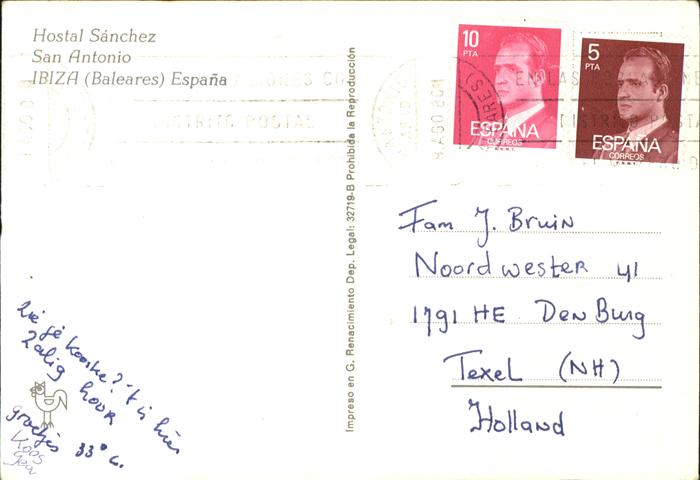 Hostal Sánchez
San Antonio
IBIZA (Baleares) España
10
PTA
ESPAÑA
CORREOS
F.N.M.T.
5
PTA
ESPAÑA
CORREOS
F.N.M.T.
DISTRITO POSTAL
AGO 80
Impreso en G. Renacimiento Dep. Legal: 32719-B Prohibida la Reproducción
Fam J. Bruin
Noordwester 41
1791 HE Den Burg
Texel (NH)
Holland
Zie je Kooske? 't is hier
Zalig hoor
groetjes 33° C.
Koos